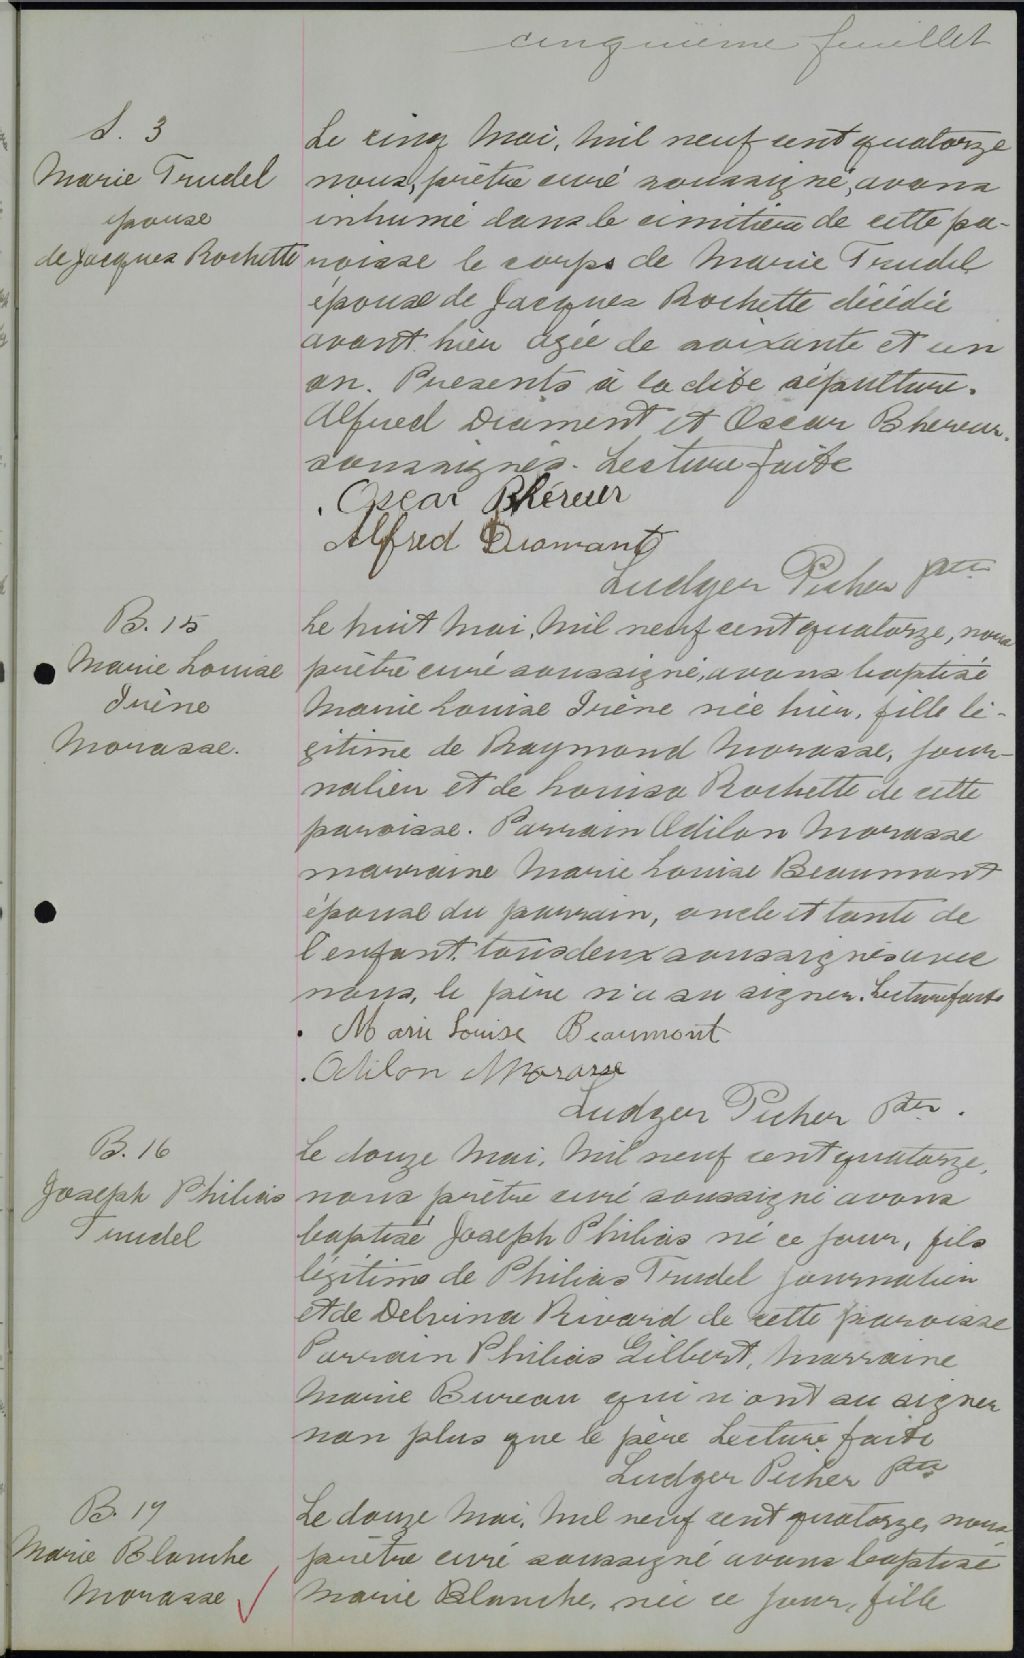 cinquième feuillet
S. 3
Marie Trudel
épouse
de Jacques Rochette
Le cinq Mai, Mil neuf cent quatorze
nous, prêtre curé soussigné, avons
inhumé dans le cimitière de cette pa-
roisse le corps de Marie Trudel
épouse de Jacques Rochette décédée
avant hier agée de soixante et un
an. Presents à la dite sépulture.
Alfred Diament et Oscar Bhereur.
soussignés. Lecture faite
Oscar Bhéreur
Alfred Diamant
Ludger Picher ptre
B. 15
Marie Louise
Irène
Morasse.
Le huit Mai, Mil neuf cent quatorze, nous
prêtre curé soussigné, avons baptisé
Marie Louise Irène née hier, fille lé-
gitime de Raymond Morasse, jour-
nalier et de Louisa Rochette de cette
paroisse. Parrain Odilon Morasse
marraine Marie Louise Beaumont
épouse du parrain, oncle et tante de
l'enfant tous deux soussignés avec
nous, le père n'a su signer. Lecture faite
Marie Louise Beaumont
Odilon Morasse
Ludger Picher Ptre.
B. 16
Joseph Philias
Trudel
Le douze Mai, Mil neuf cent quatorze,
nous prêtre curé soussigné avons
baptisé Joseph Philias né ce jour, fils
légitime de Philias Trudel journalier
et de Delvina Rivard de cette paroisse
Parrain Philias Gilbert, Marraine
Marie Bureau qui n'ont su signer
non plus que le père Lecture faite
Ludger Picher Ptre
B. 17
Marie Blanche
Morasse
Le douze Mai, Mil neuf cent quatorze, nous
prêtre curé soussigné avons baptisé
Marie Blanche, née ce jour, fille